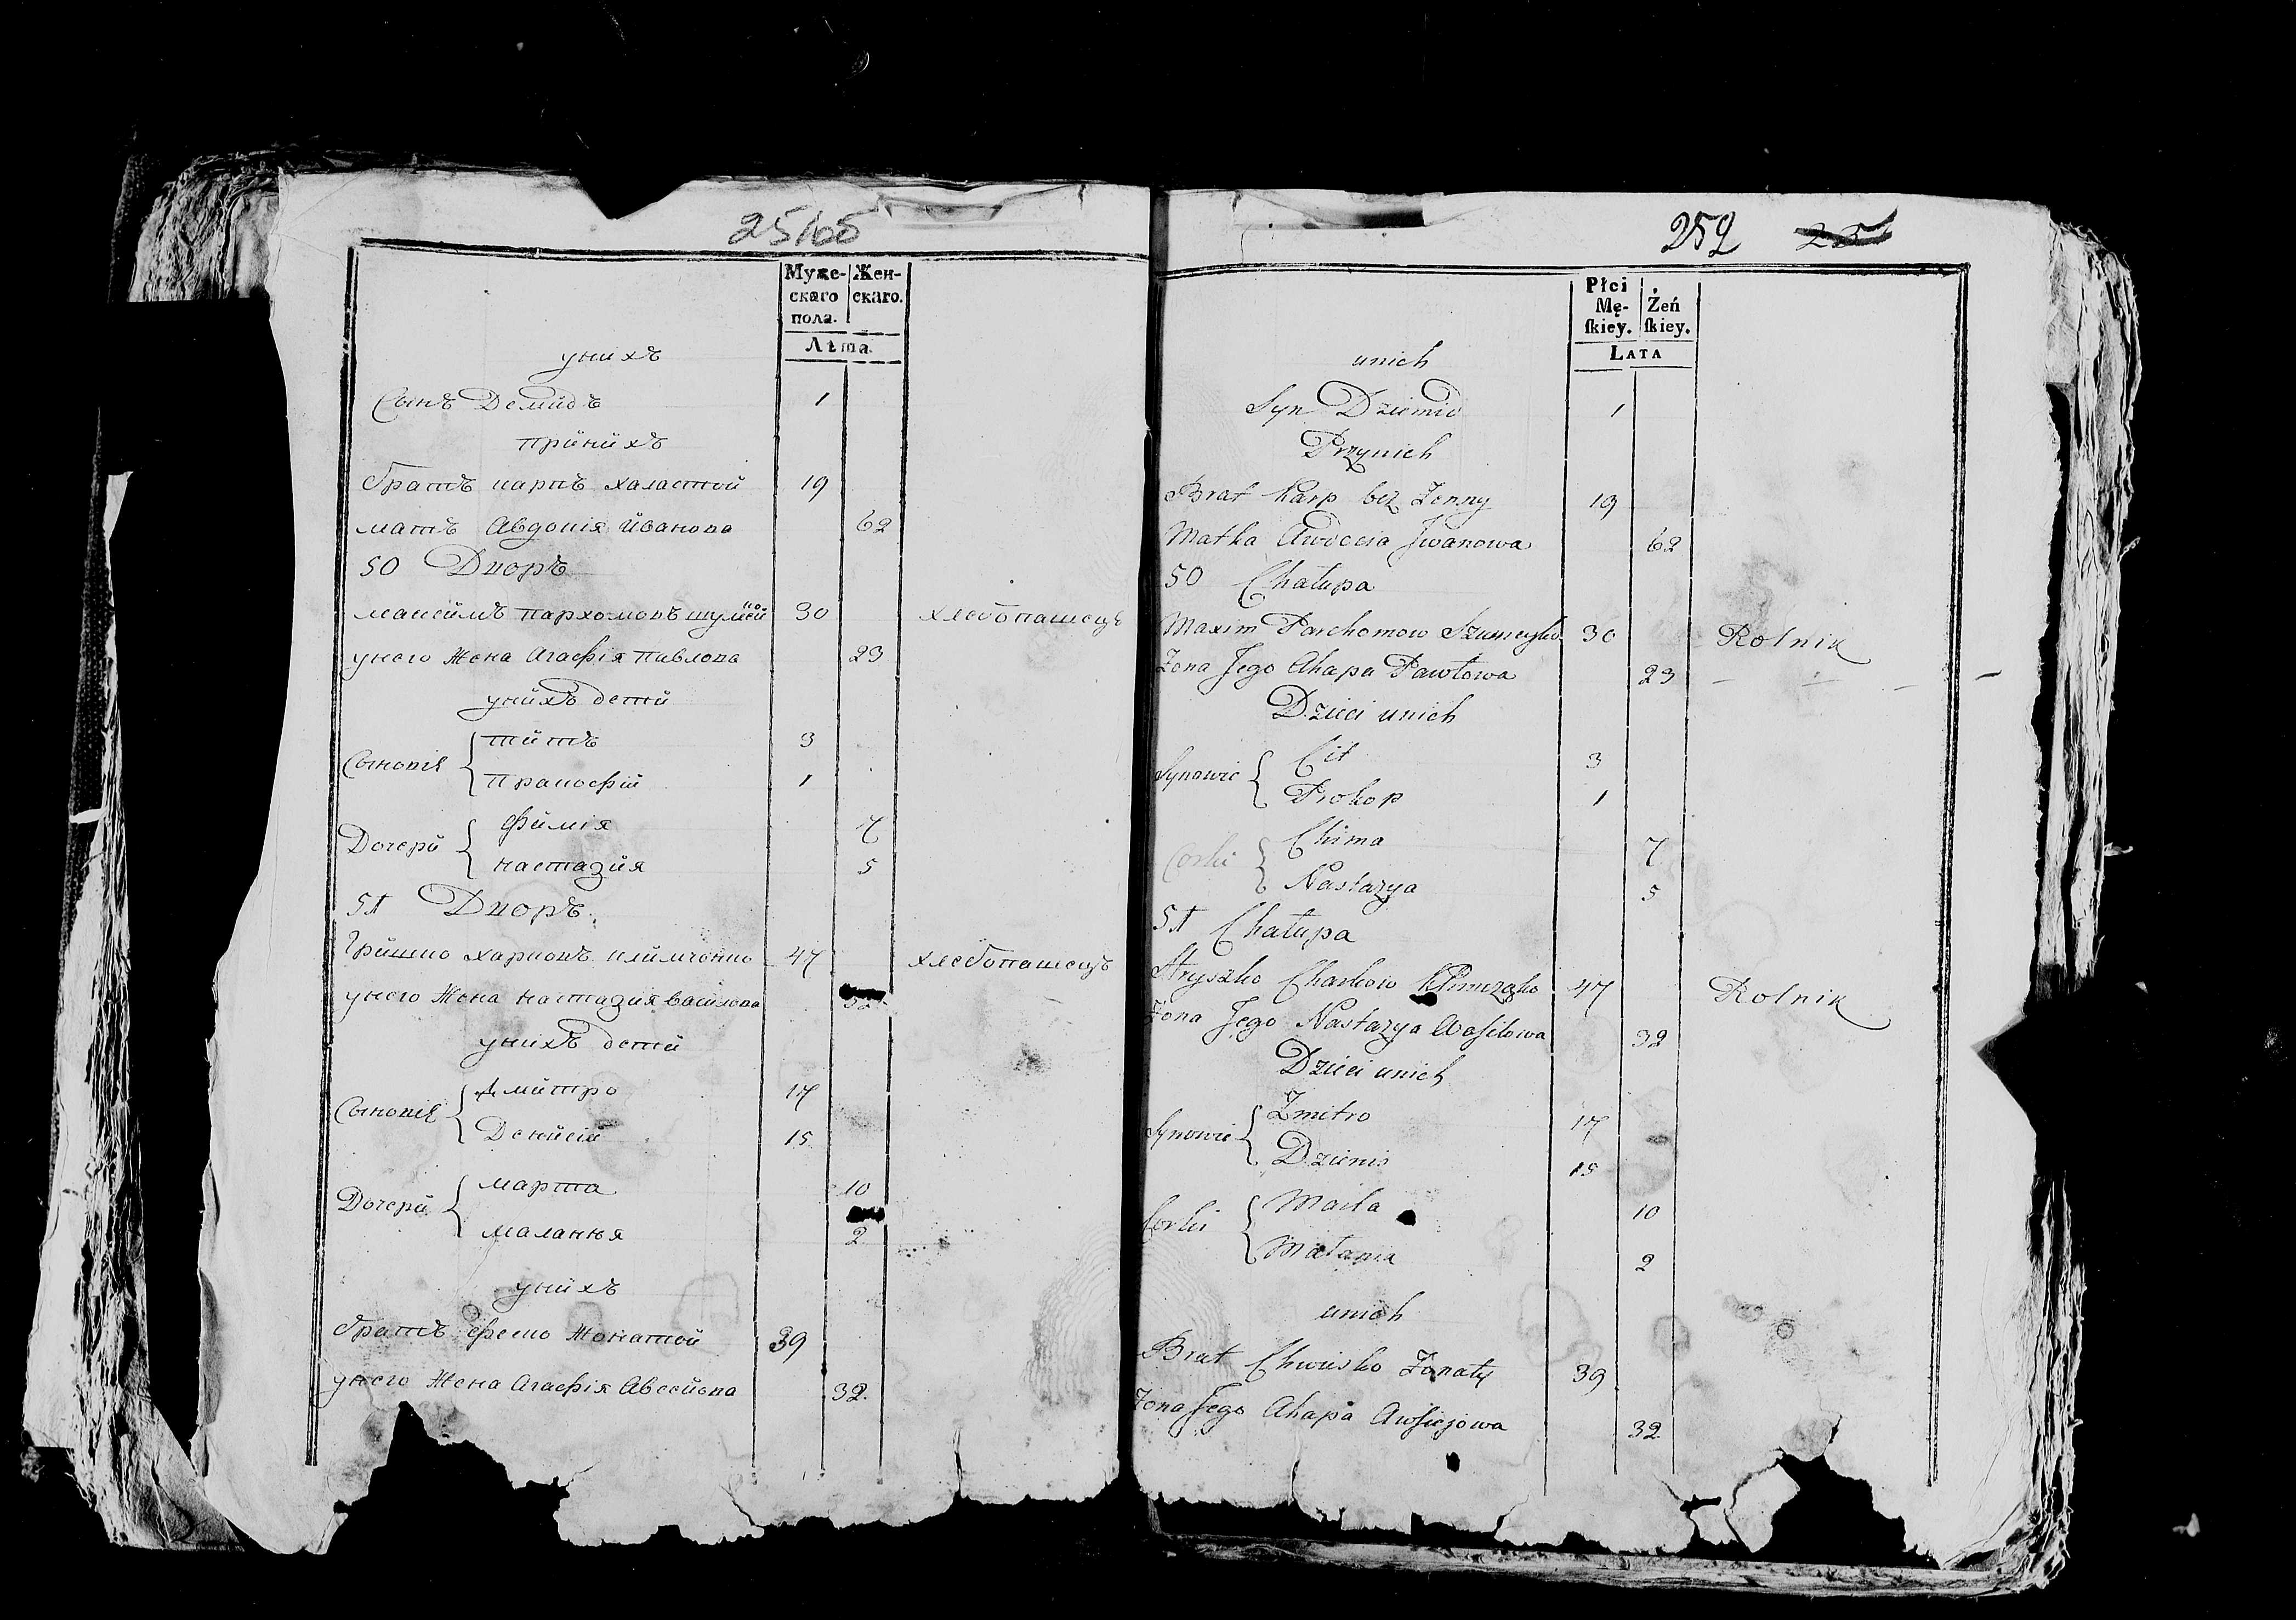 251об
Муже-
скаго
пола.
Жен-
скаго.
Лѣта.
унихъ
Сынъ Демидъ 1
принихъ
братъ карпъ халастой 19
мать Авдокія Иванова 62
50 Дворъ
максимъ пархомовъ шумейко 30 хлебопашецъ
унего Жена Агафія Павлова 23
унихъ дети
Сыновія { титъ 3
Пракофій 1
Дочери { фимія 7
настазия 5
51 Дворъ
Гришко харковъ климченко 47 хлебопашецъ
унего Жена настазия василова 32
унихъ дети
Сыновія { Дмитро 17
Денисій 15
Дочери { марта 10
маланья 2
унихъ
братъ фесько Жонатой 39
унего Жена Агафія Авсейова 32.
252 251
Płci
Mę-
ſkiey.
Żeń
ſkiey.
LATA
unich
Syn Dziemid 1
Przynich
Brat Karp bez Zonny 19
Matka Awdocia Jwanowa 62
50 Chałupa
Maxim Parchomow Szumeyko 30 Rolnik
Zona Jego Ahapa Pawłowa 23
Dzieci unich
Synowie { Cit 3
Prokop 1
Corki { Chima 7
Nastazya 5
51 Chałupa
Hryszko Charkow Klimczęko 47 Rolnik
Zona Jego Nastazya Wasilowa 32
Dzieci unich
Synowie { Zmitro 17
Dzienis 15
Corki { Marta 10
Małania 2
unich
Brat Chwiesko Zonaty 39
Zona Jego Ahapa Awsiejowa 32